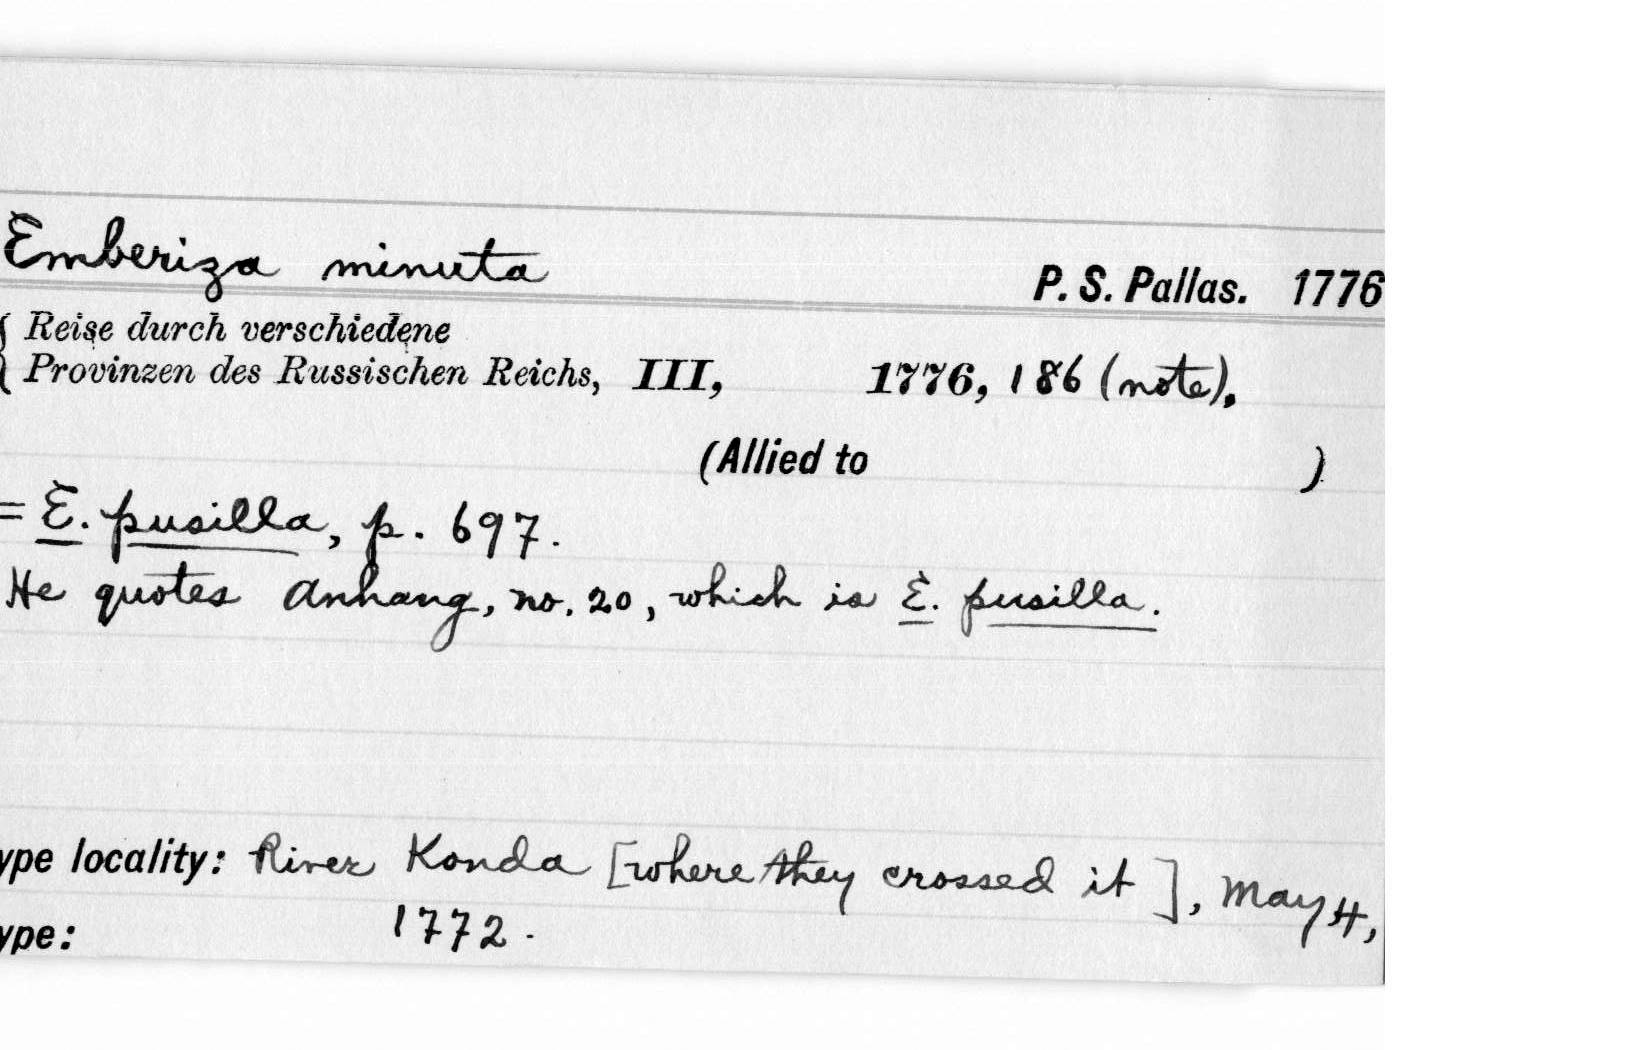 Emberiza minuta
P. S. Pallas. 1776
Reise durch verschiedene
Provinzen des Russischen Reichs, III, 1776, 186 (note).
(Allied to )
= E. pusilla, p. 697.
He quotes Anhang, no. 20, which is E. pusilla.
ype locality: River Konda [where they crossed it], May 4,
ype: 1772.